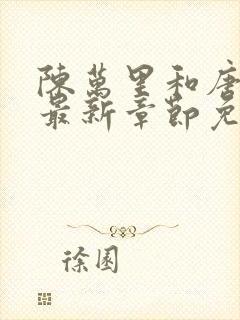 陳萬里和唐
最新章節免
徐園